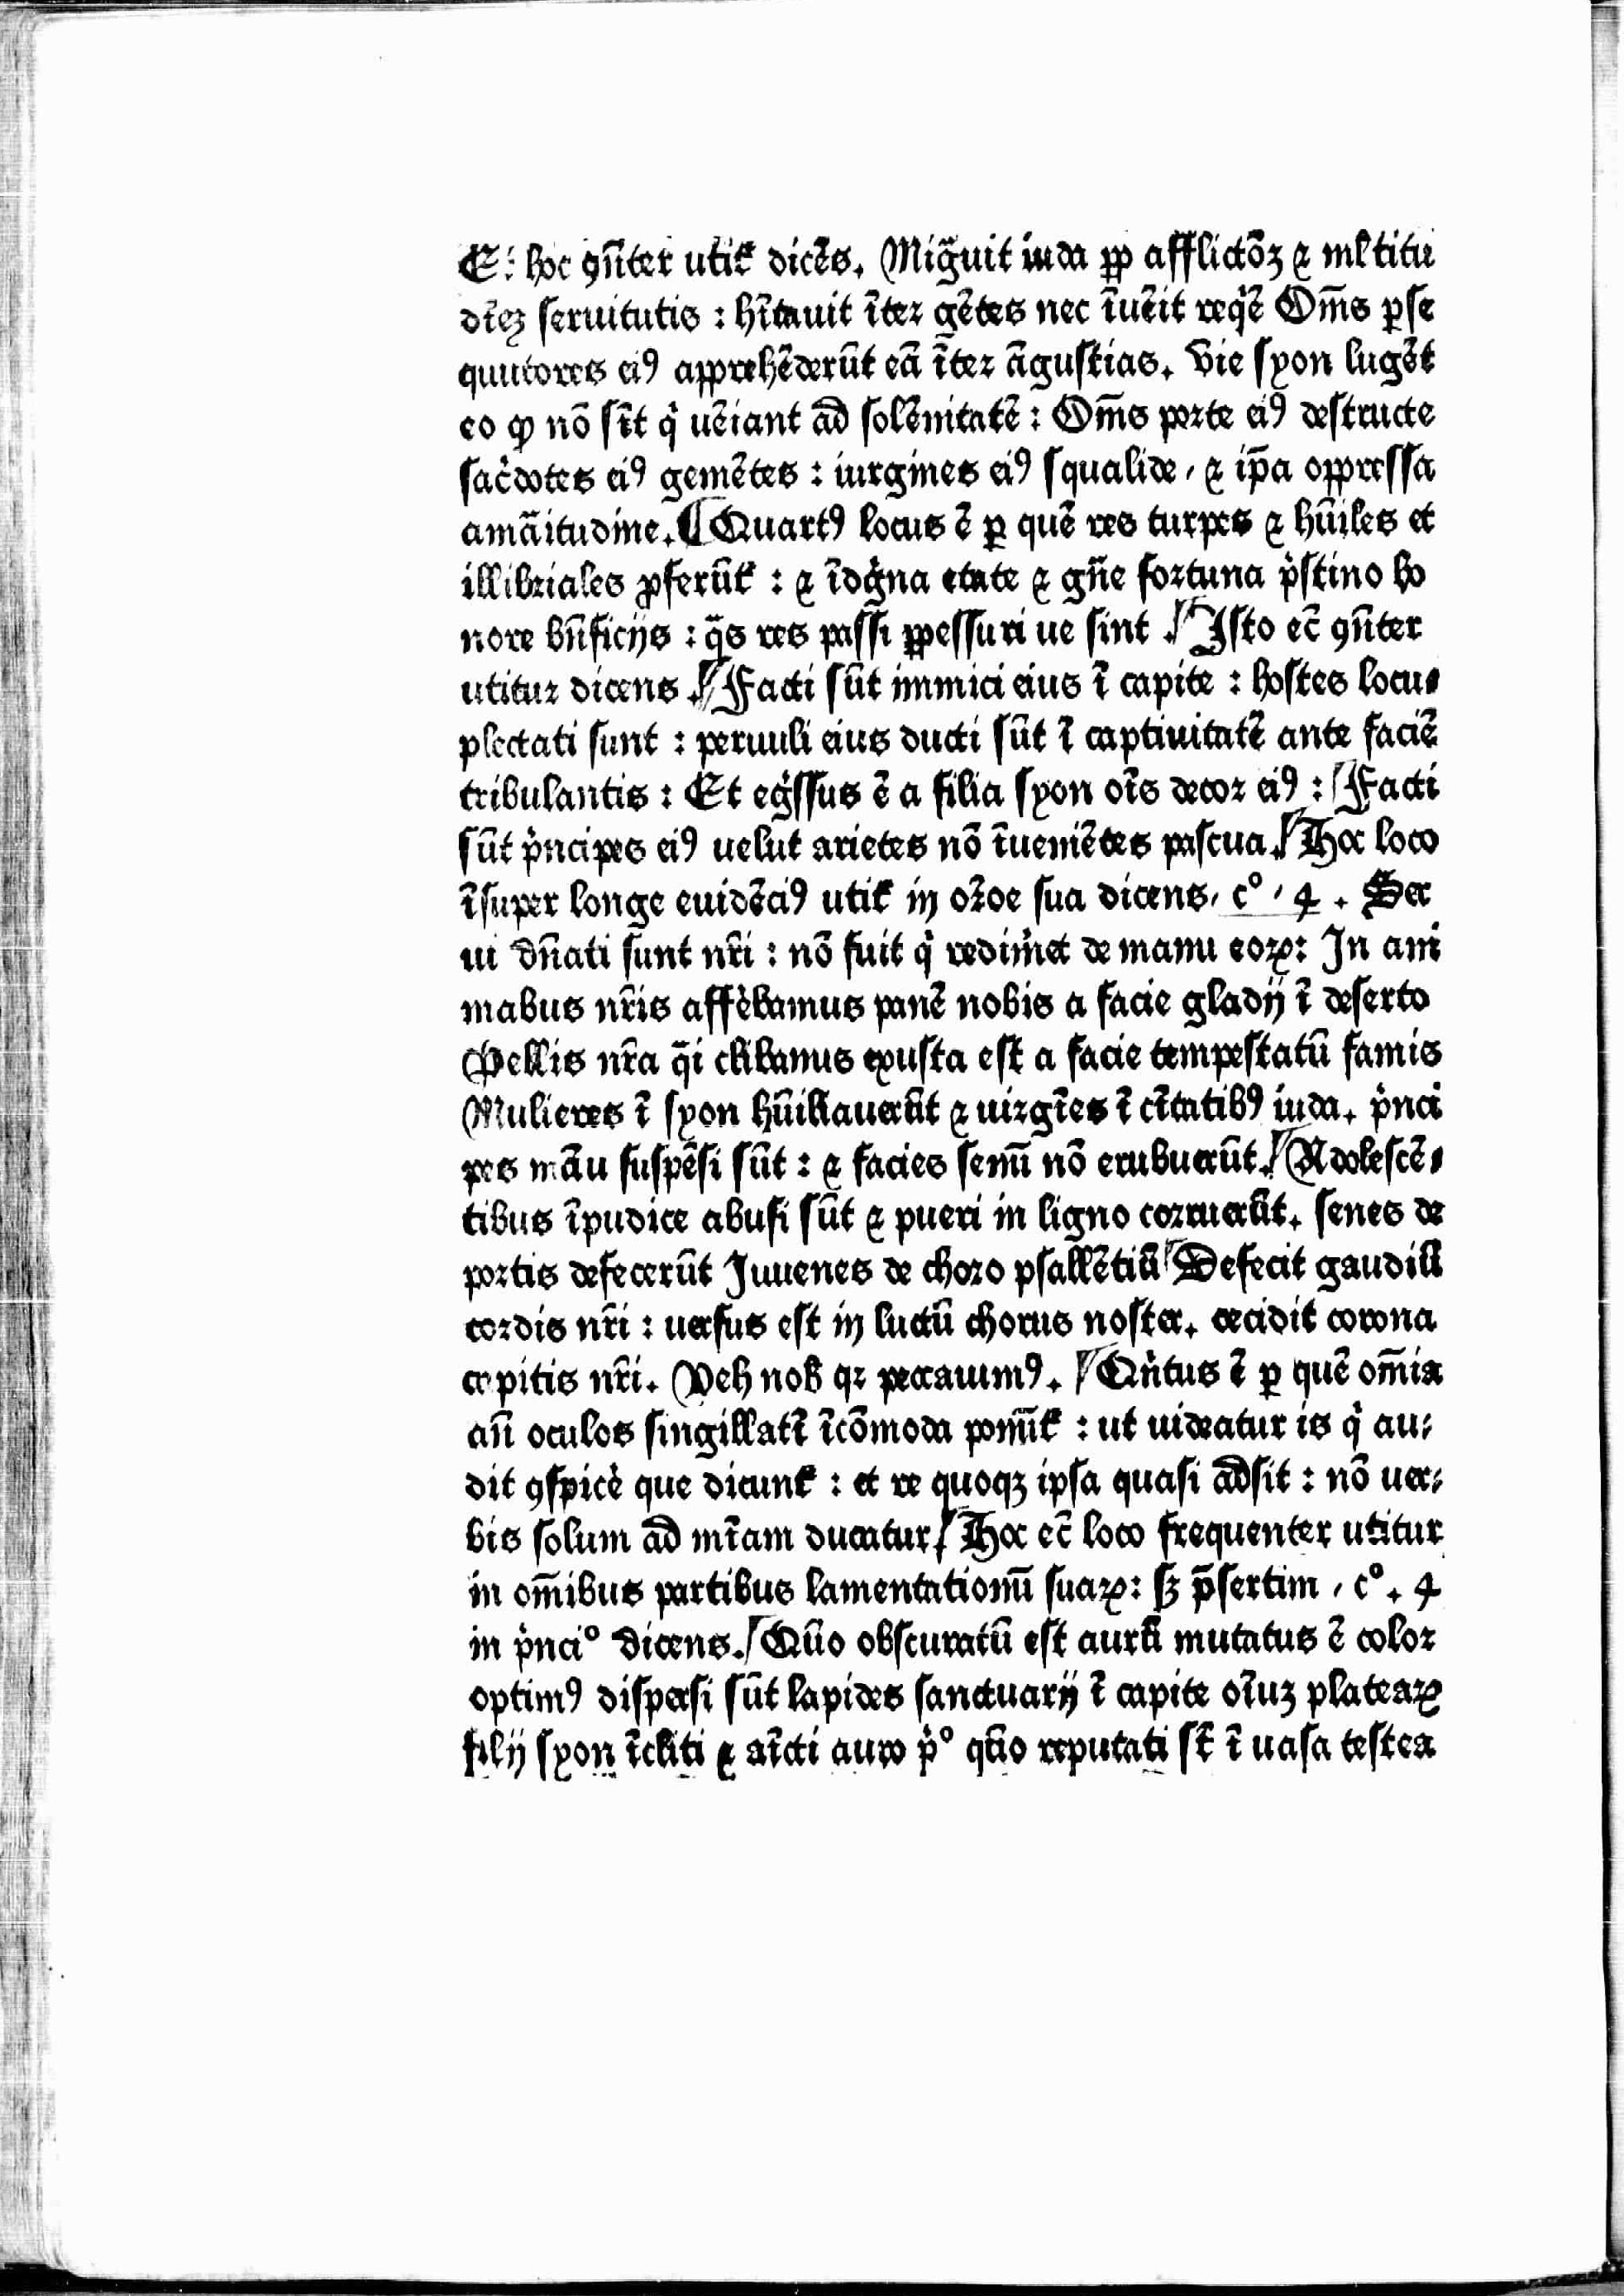 Et hoc ꝯñter utit᷑ dicẽs. Mig̃uit iuda ꝓp afflictõꝫ ⁊ ml̃titu
dĩeꝫ seruitutis : hĩtauit ĩter gẽtes nec ĩuẽit req̃ẽ Om̃s ꝑse
qutores eiꝰ apprehẽderũt eã ĩter ãgustias. Vie syon lugẽt
eo ꝙ nõ sĩt q̇ uẽiant ad solẽnitatẽ : Om̃s porte eiꝰ destructe
sac̃dotes eiꝰ gemẽtes : uirgines eiꝰ squalide, ⁊ ip̃a oppressa
amãitudine. ¶ Quartꝰ locus ẽ ꝑ quẽ res turpes ⁊ hũiles et
illibriales ꝓferũt᷑ : ⁊ ĩdg̃na etate ⁊ gñe fortuna p̃stino ho
nore bñficijs : q̃s res passi ꝑpessuri ue sint . Isto ec̃ ꝯñter
utitur dicens . Facti sũt inimici eius ĩ capite : hostes locu-
plectati sunt : peruuli eius ducti sũt ĩ captiuitatẽ ante faciẽ
tribulantis : Et eg̃ssus ẽ a filia syon oĩs decor eiꝰ : Facti
sũt p̃ncipes eiꝰ uelut arietes nõ ĩueniẽtes pascua. Hoc loco
ĩsuper longe euidẽciꝰ utit᷑ in or̃oe sua dicens, c° , 4 . Ser
ui dñati sunt nr̃i : nõ fuit q̇ redim̃et de manu eoꝝ: In ani
mabus nr̃is affer̃bamus panẽ nobis a facie gladij ĩ deserto
Pellis nr̃a q̃i clibanus exusta est a facie tempestatũ famis
Mulieres ĩ syon hũiliauerũt ⁊ uirgĩes ĩ cĩtatibꝰ iuda. p̃nci
pes mãu suspẽsi sũt : ⁊ facies senũ nõ erubuerũt. Adolescẽ-
tibus ĩpudice abusi sũt ⁊ pueri in ligno corruerũt. senes de
portis defecerũt Juuenes de choro psallẽtiũ Defecit gaudiũ
cordis nr̃i : uersus est in luctũ chorus noster. cecidit corona
capitis nr̃i. Veh nob̃ qꝛ peccauimꝰ. Qñtus ẽ ꝑ quẽ om̃ia
añ oculos singillatĩ ĩcõmoda ponũt᷑ : ut uideatur is q̇ au-
dit ꝯspicẽ que dicunt᷑ : et re quoqꝫ ipsa quasi adsit : nõ uer-
bis solum ad mĩam ducatur. Hoc ec̃ loco frequenter utitur
in om̃ibus partibus lamentationũ suaꝝ: sꝫ p̃sertim , c° . 4
in p̃nci° dicens. Qũo obscuratũ est aurũ mutatus ẽ color
optimꝰ dispersi sũt lapides sanctuarij ĩ capite oĩuꝫ plateaꝝ
filij syon ĩcliti ⁊ aĩcti auro p̃° qũo reputati st̃ ĩ uasa testea